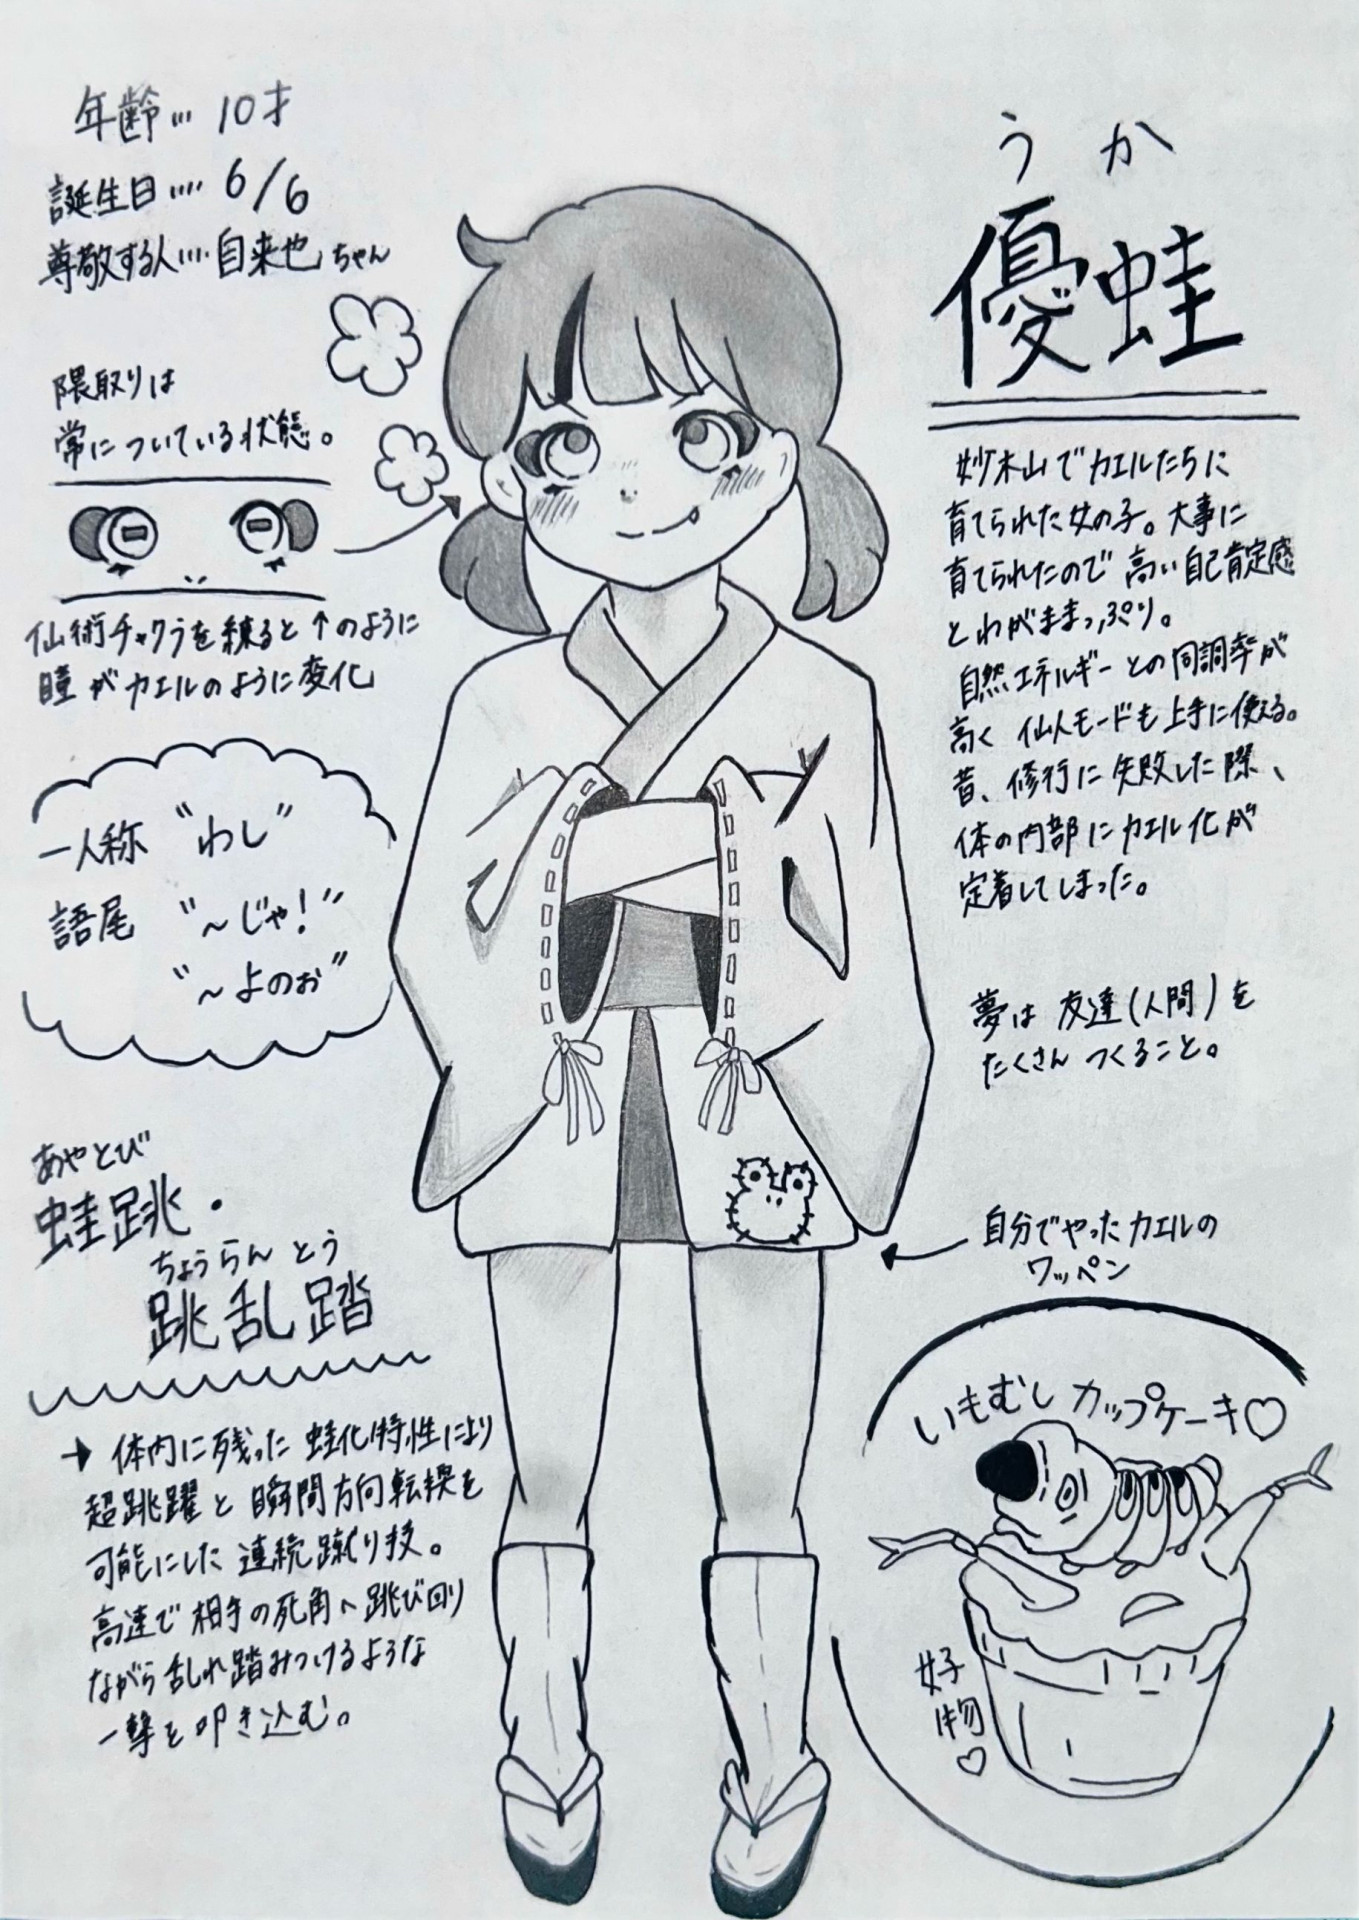 年齢… 10才
誕生日…. 6/6
尊敬する人…. 自来也ちゃん
隈取りは
常についている状態。
仙術チャクラを練ると↑のように
瞳がカエルのように変化
一人称 "わし"
語尾 "～じゃ!"
"～よのぉ"
あやとび
蛙跳・
ちょうらんとう
跳乱踏
→ 体内に残った蛙化特性により
超跳躍と瞬間方向転換を
可能にした連続蹴り技。
高速で相手の死角へ跳び回り
ながら乱れ踏みつけるような
一撃を叩き込む。
うか
優蛙
妙木山でカエルたちに
育てられた女の子。大事に
育てられたので高い自己肯定感
とわがままっぷり。
自然エネルギーとの同調率が
高く仙人モードも上手に使える。
昔、修行に失敗した際、
体の内部にカエル化が
定着してしまった。
夢は友達(人間)を
たくさんつくること。
自分でやったカエルの
ワッペン
いもむしカップケーキ♡
好物♡